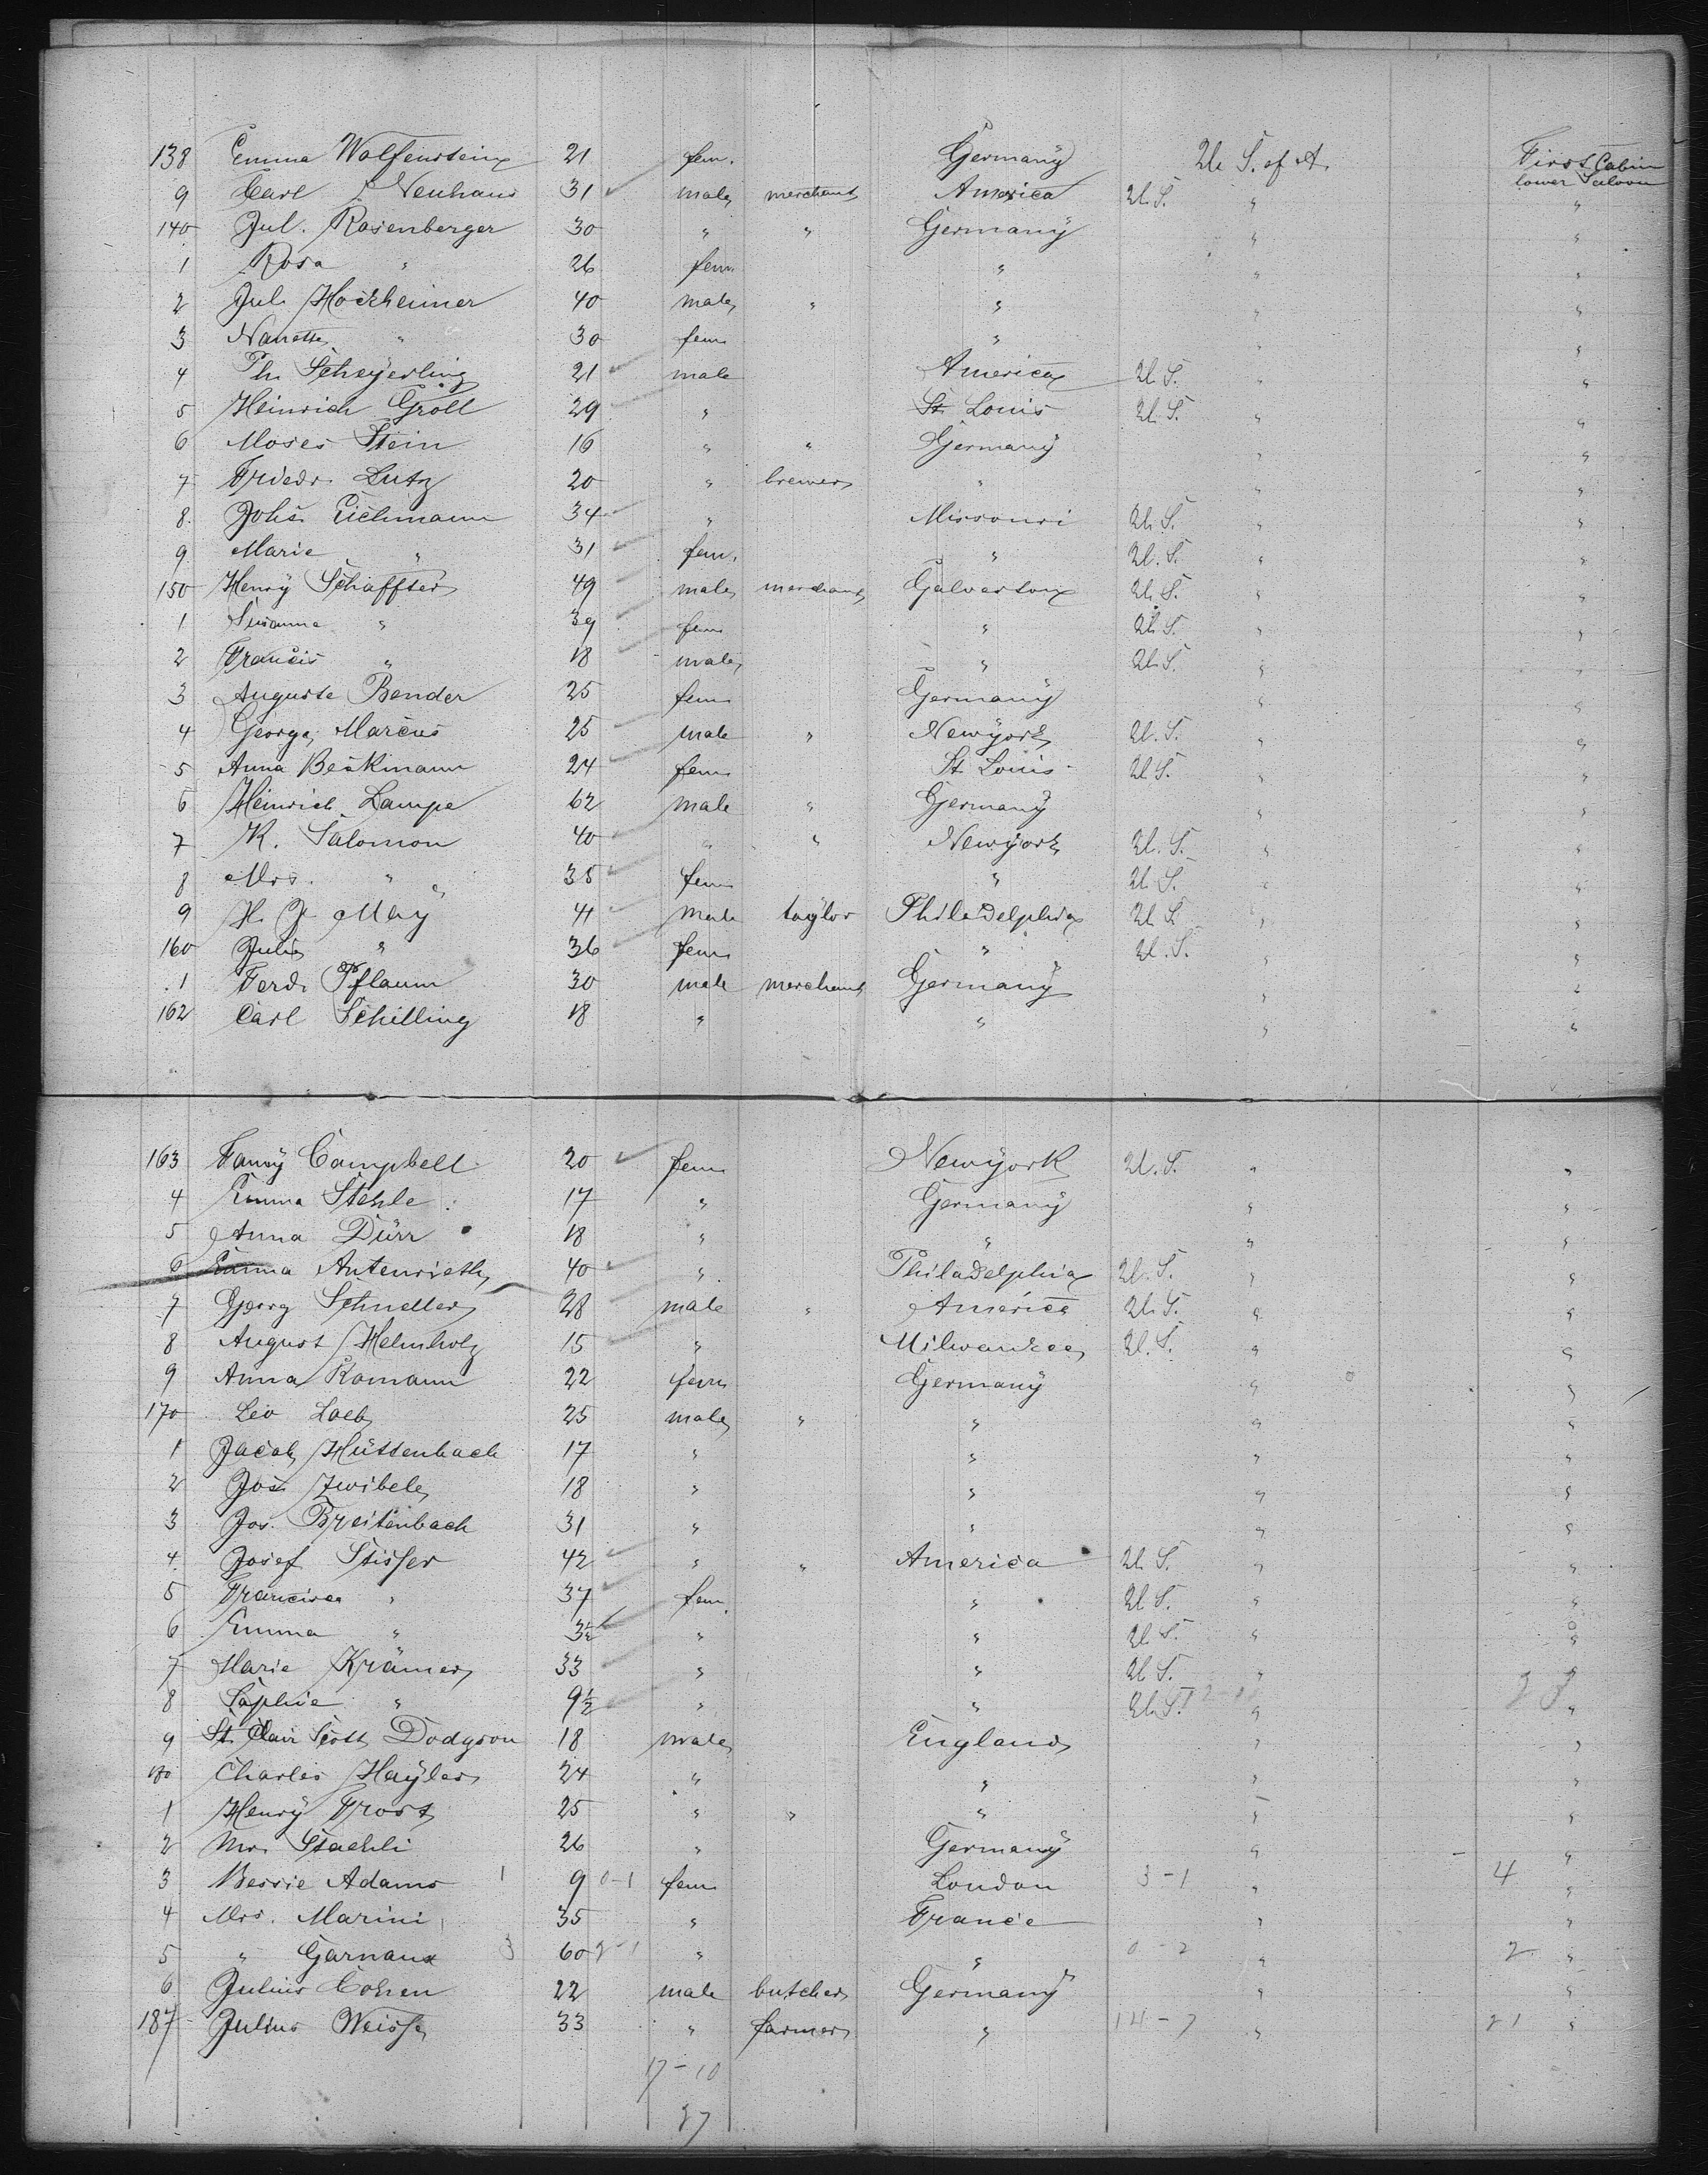 138 Emma Wolfenstein 21 fem. Germany U. S. of A. First Cabin lower Saloon
9 Carl J. Neuhaus 31 male merchant America U. S. " "
140 Jul. Rosenberger 30 " " Germany " "
1 Rosa " 26 fem " " "
2 Jul. Hockheimer 40 male " " " "
3 Nanette " 30 fem " " "
4 Ph. Scheyerling 21 male America U. S. " "
5 Heinrich Groll 29 " St Louis U. S. " "
6 Moses Stein 16 " " Germany " "
7 Friedr. Lutz 20 " brewer " " "
8. Johs. Eichmann 34 " Missouri U. S. " "
9 Marie " 31 fem. " U. S. " "
150 Henry Schaffter 49 male merchant Galveston U. S. " "
1 Susanna " 39 fem " U. S. " "
2 Francis " 18 male " U. S. " "
3 Auguste Bender 25 fem Germany " "
4 George Marcus 25 male " Newyork U. S. " "
5 Anna Beckmann 24 fem St. Louis U. S. " "
6 Heinrich Lampe 62 male " Germany " "
7 K. Salomon 40 " " Newyork U. S. " "
8 Mrs. " 35 fem " U. S. " "
9 H. J. May 41 male taylor Philadelphia U. S. " "
160 Julia " 36 fem " U. S. " "
1 Ferd. Pflaum 30 male merchant Germany " "
162 Carl Schilling 18 " " " "
163 Fanny Campbell 20 fem Newyork U. S. " "
4 Emma Stehle 17 " Germany " "
5 Anna Dürr 18 " " " "
6 Emma Autenrieth 40 " Philadelphia U. S. " "
7 Georg Schneller 28 male " America U. S. " "
8 August Helmholz 15 " Milwaukee U. S. " "
9 Anna Romann 22 fem Germany " "
170 Leo Loeb 25 male " " " "
1 Jacob Hüttenbach 17 " " " "
2 Jos. Zwibele 18 " " " "
3 Jos. Breitenbach 31 " " " "
4. Josef Stisser 42 " " America U. S. " "
5 Francisca " 37 fem. " U. S. " "
6 Emma " 3½ " " U. S. " "
7 Marie Krämer 33 " " U. S. " "
8 Sophie " 9½ " " U. S. " "
9 St. Clair Scott Dodgson 18 male England " "
180 Charles Hayler 24 " " " "
1 Henry Frost 25 " " " " "
2 Mr. Staehli 26 " Germany " "
3 Bessie Adams 1 9 0-1 fem London 3-1 " 4 "
4 Mrs. Marini 35 " France " "
5 " Garnaux 3 60 2-1 " " 0-2 " 2 "
6 Julius Cohen 22 male butcher Germany " "
187 Julius Weisse 33 " farmer " 14-7 " 21 "
17-10
27